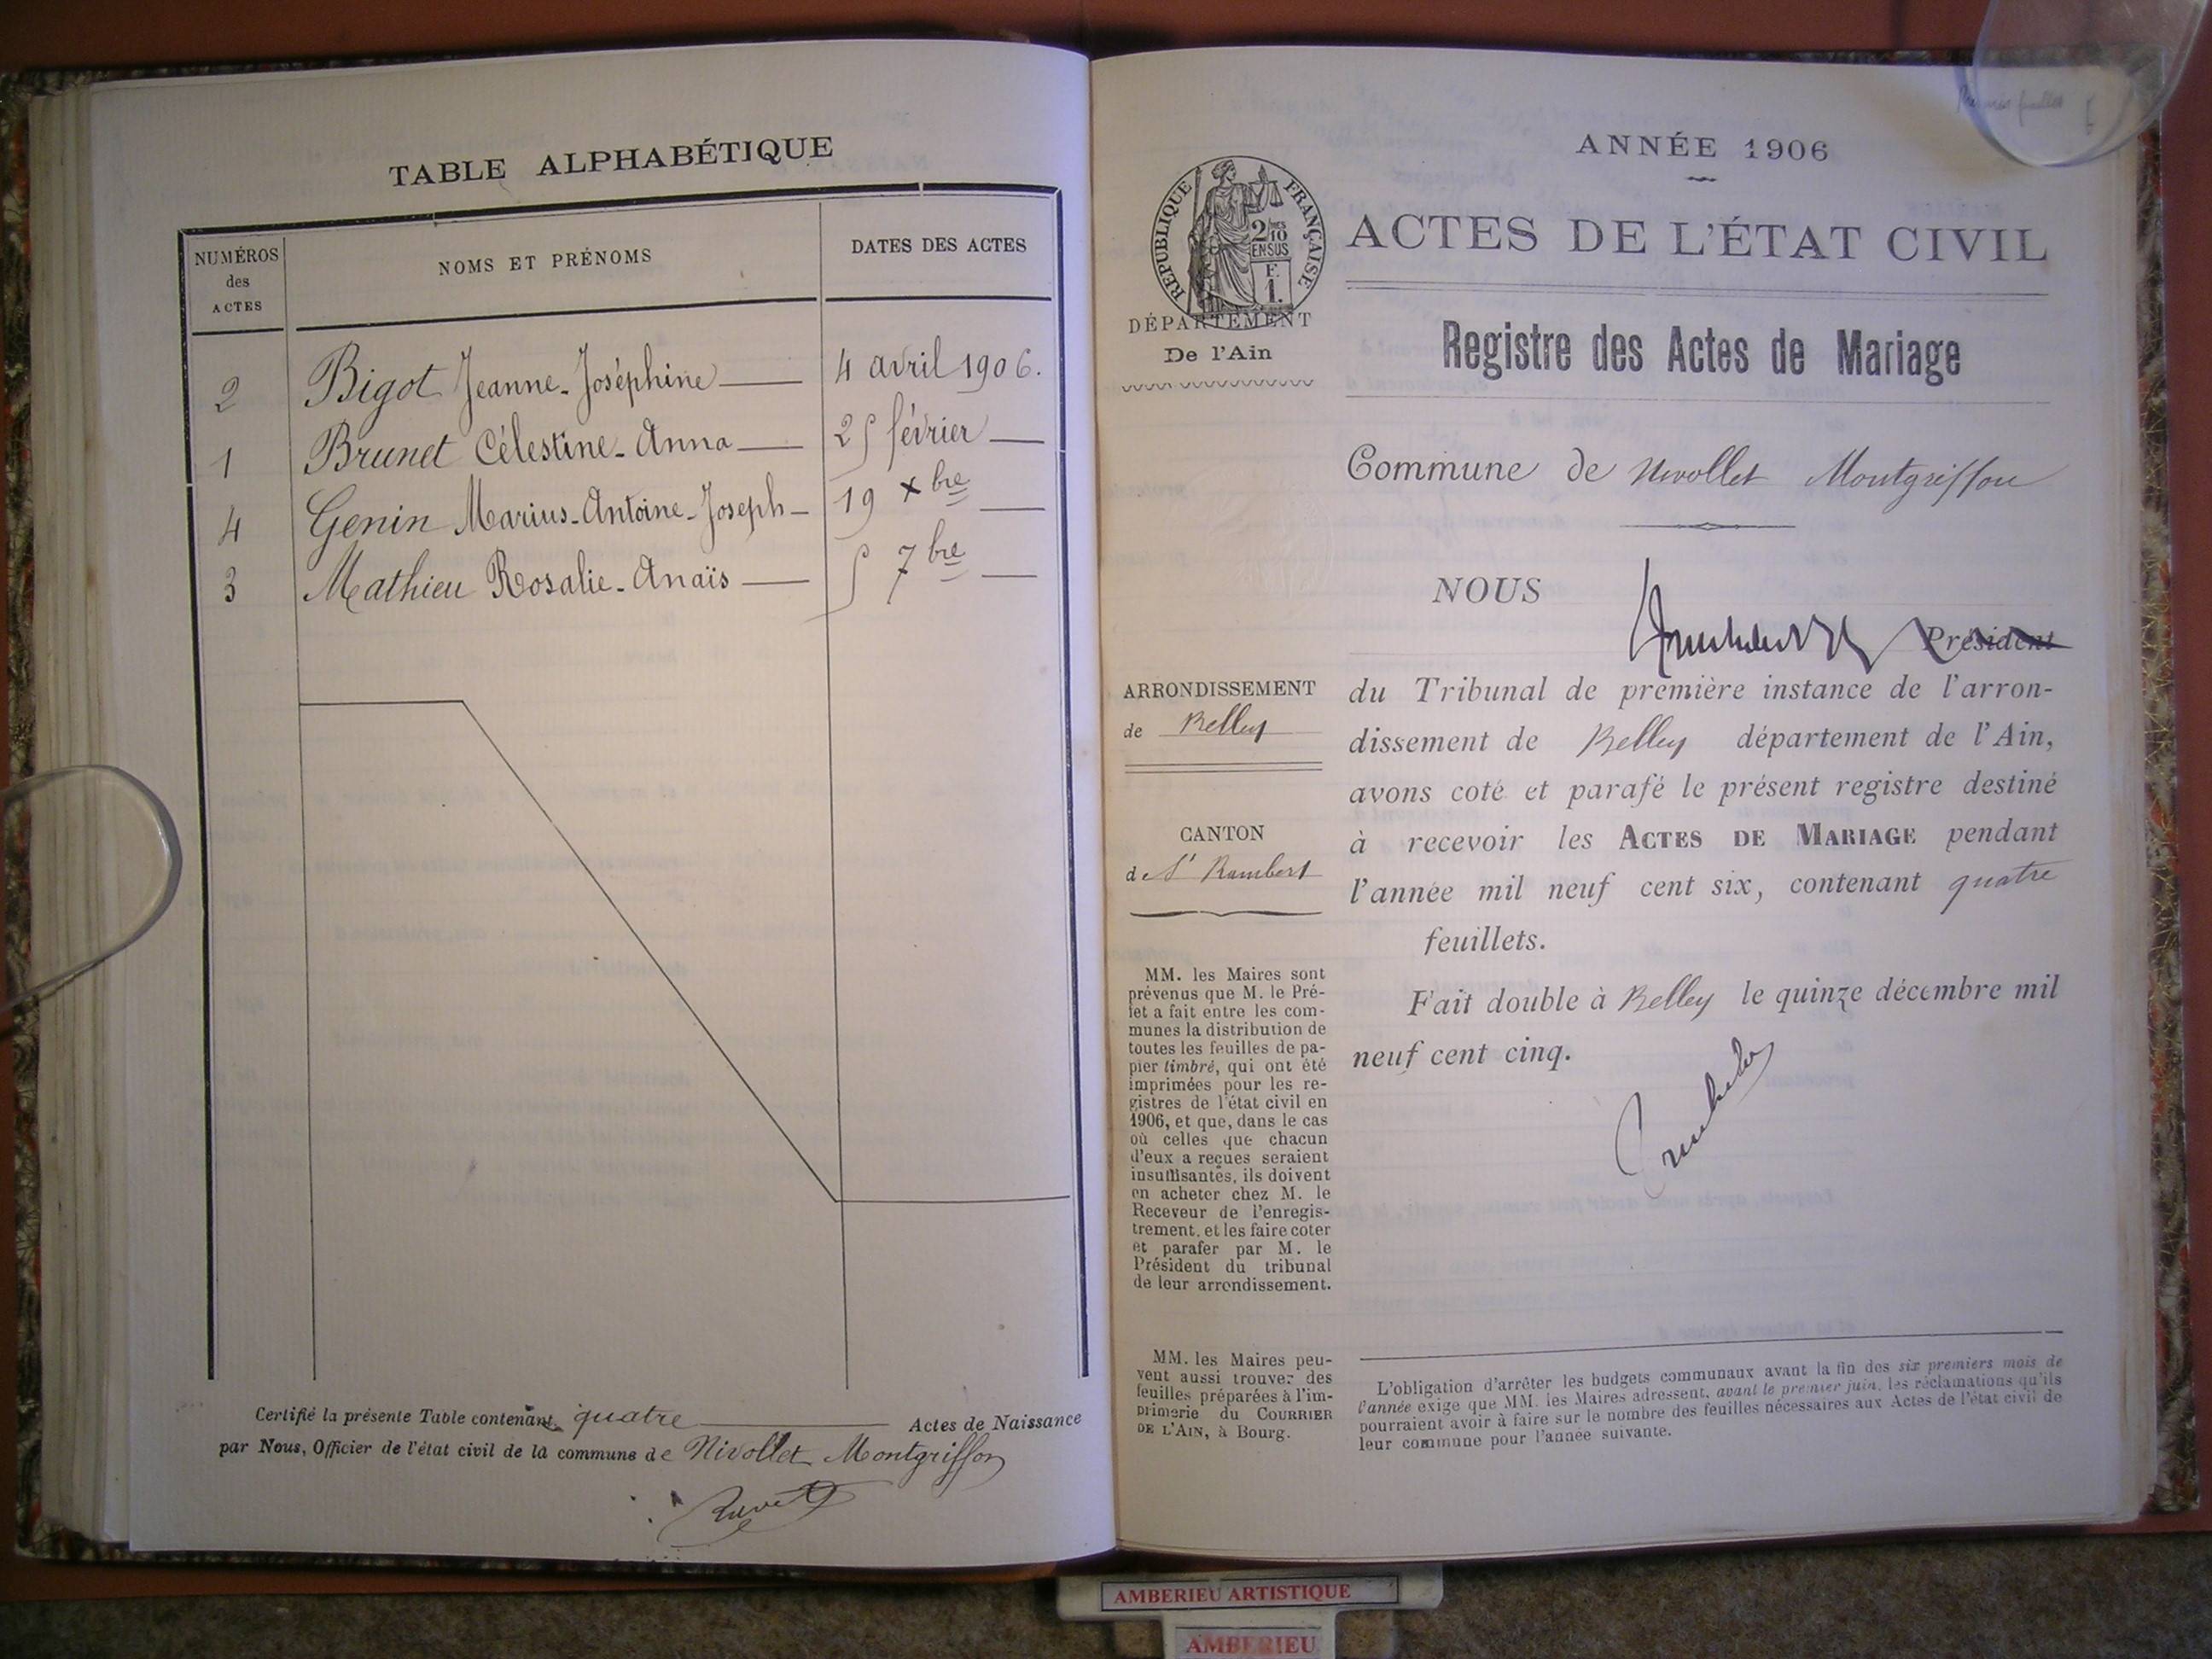 TABLE ALPHABÉTIQUE
NUMÉROS
des
ACTES
NOMS ET PRÉNOMS
DATES DES ACTES
2 Bigot Jeanne-Joséphine 4 avril 1906.
1 Brunet Célestine-Anna 25 février
4 Genin Marius-Antoine-Joseph 19 Xbre
3 Mathieu Rosalie-Anaïs 5 7bre
Certifié la présente Table contenant quatre Actes de Naissance
par Nous, Officier de l'état civil de la commune de Nivollet Montgriffon
ANNÉE 1906
RÉPUBLIQUE FRANÇAISE
2 10
EN SUS
F.
1.
DÉPARTEMENT
De l'Ain
ACTES DE L'ÉTAT CIVIL
Registre des Actes de Mariage
Commune de Nivollet Montgriffon
NOUS
Président
ARRONDISSEMENT
de Belley
CANTON
de St Rambert
du Tribunal de première instance de l'arron-
dissement de Belley département de l'Ain,
avons coté et parafé le présent registre destiné
à recevoir les ACTES DE MARIAGE pendant
l'année mil neuf cent six, contenant quatre
feuillets.
Fait double à Belley le quinze décembre mil
neuf cent cinq.
MM. les Maires sont
prévenus que M. le Pré-
fet a fait entre les com-
munes la distribution de
toutes les feuilles de pa-
pier timbré, qui ont été
imprimées pour les re-
gistres de l'état civil en
1906, et que, dans le cas
où celles que chacun
d'eux a reçues seraient
insuffisantes, ils doivent
en acheter chez M. le
Receveur de l'enregis-
trement, et les faire coter
et parafer par M. le
Président du tribunal
de leur arrondissement.
MM. les Maires peu-
vent aussi trouver des
feuilles préparées à l'im-
primerie du COURRIER
DE L'AIN, à Bourg.
L'obligation d'arrêter les budgets communaux avant la fin des six premiers mois de
l'année exige que MM. les Maires adressent, avant le premier juin, les réclamations qu'ils
pourraient avoir à faire sur le nombre des feuilles nécessaires aux Actes de l'état civil de
leur commune pour l'année suivante.
AMBERIEU ARTISTIQUE
AMBERIEU